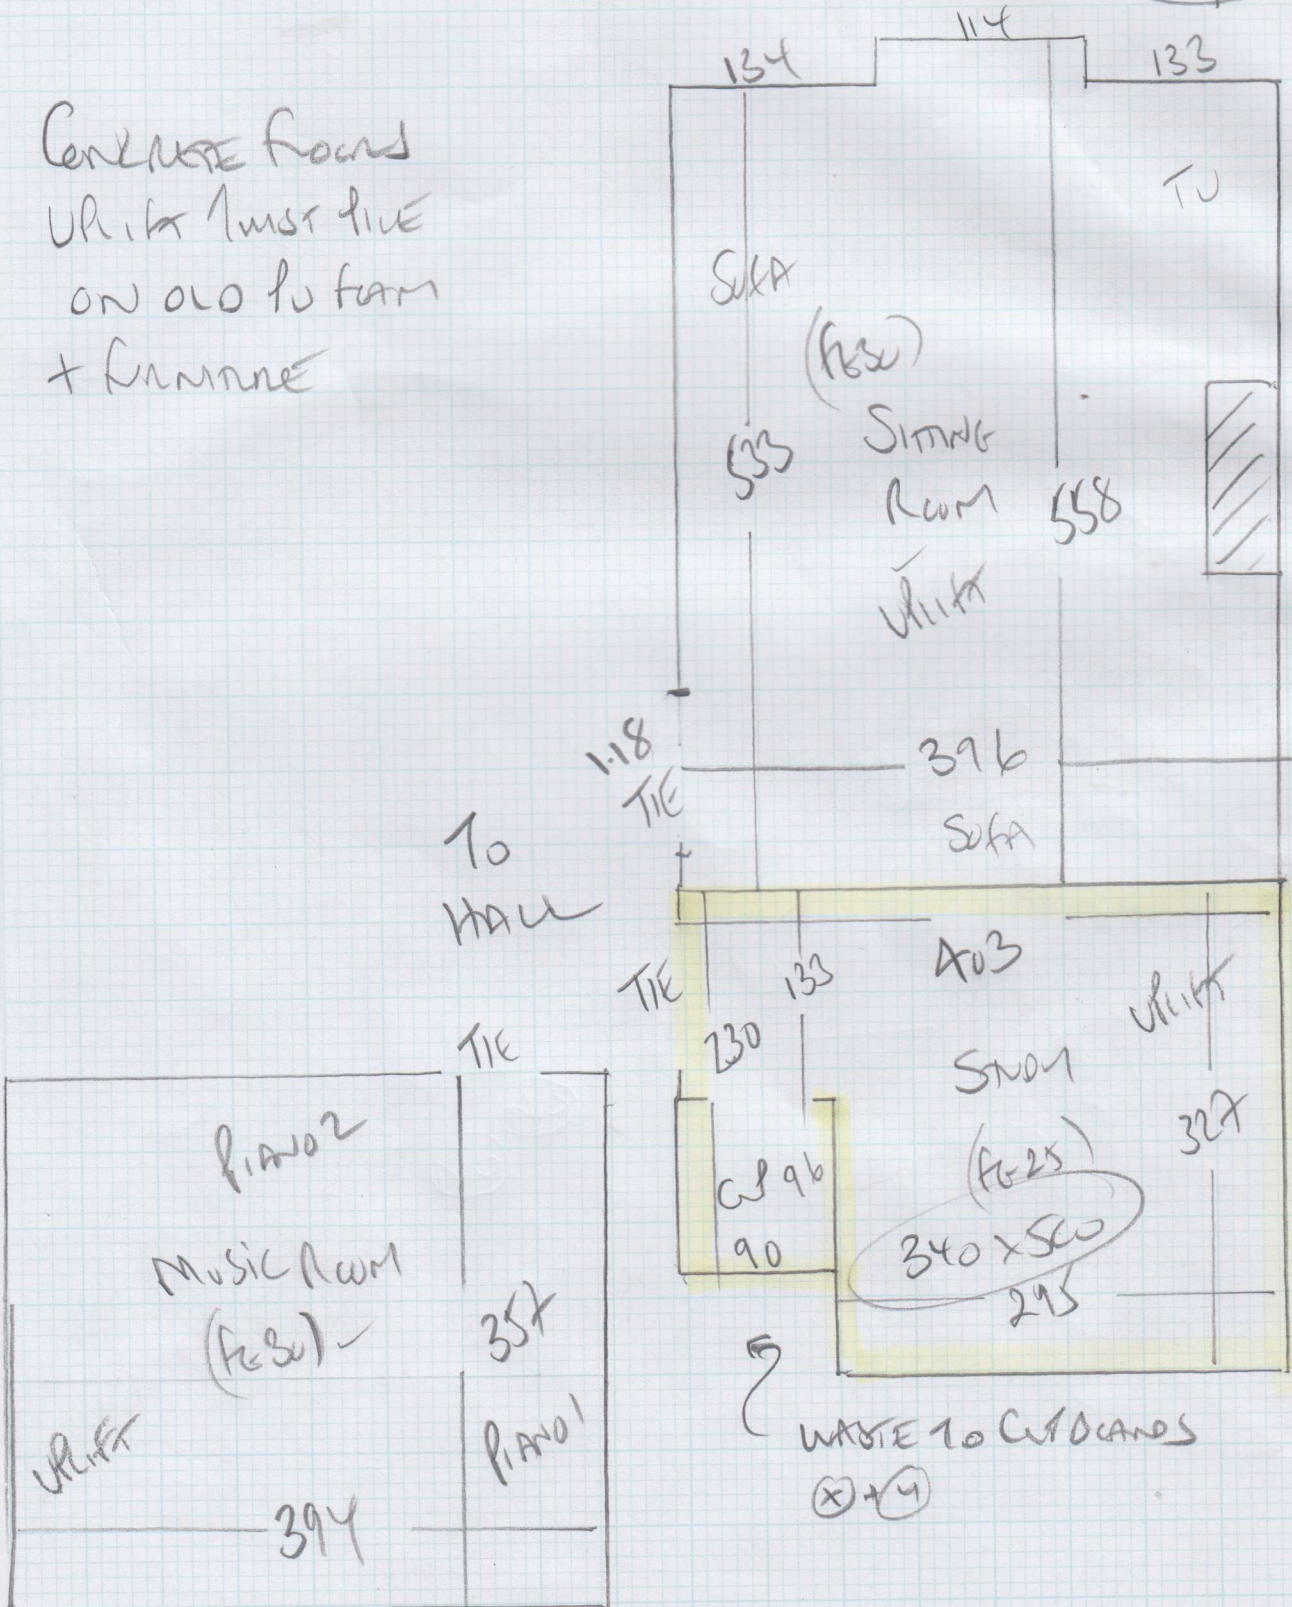 CONCRETE FLOORS
UPLIFT TWIST PILE
ON OLD PU FOAM
+ FURNITURE
134
114
133
TV
SOFA
(FE30)
SITTING
ROOM
533
558
UPLIFT
1.18
TIE
396
SOFA
TO
HALL
TIE
133
403
UPLIFT
230
STUDY
327
(FE25)
CUP 96
90
340 X 560
295
TIE
PIANO 2
MUSIC ROOM
(FE30)
357
UPLIFT
PIANO 1
394
WASTE TO CUPBOARDS
X + Y